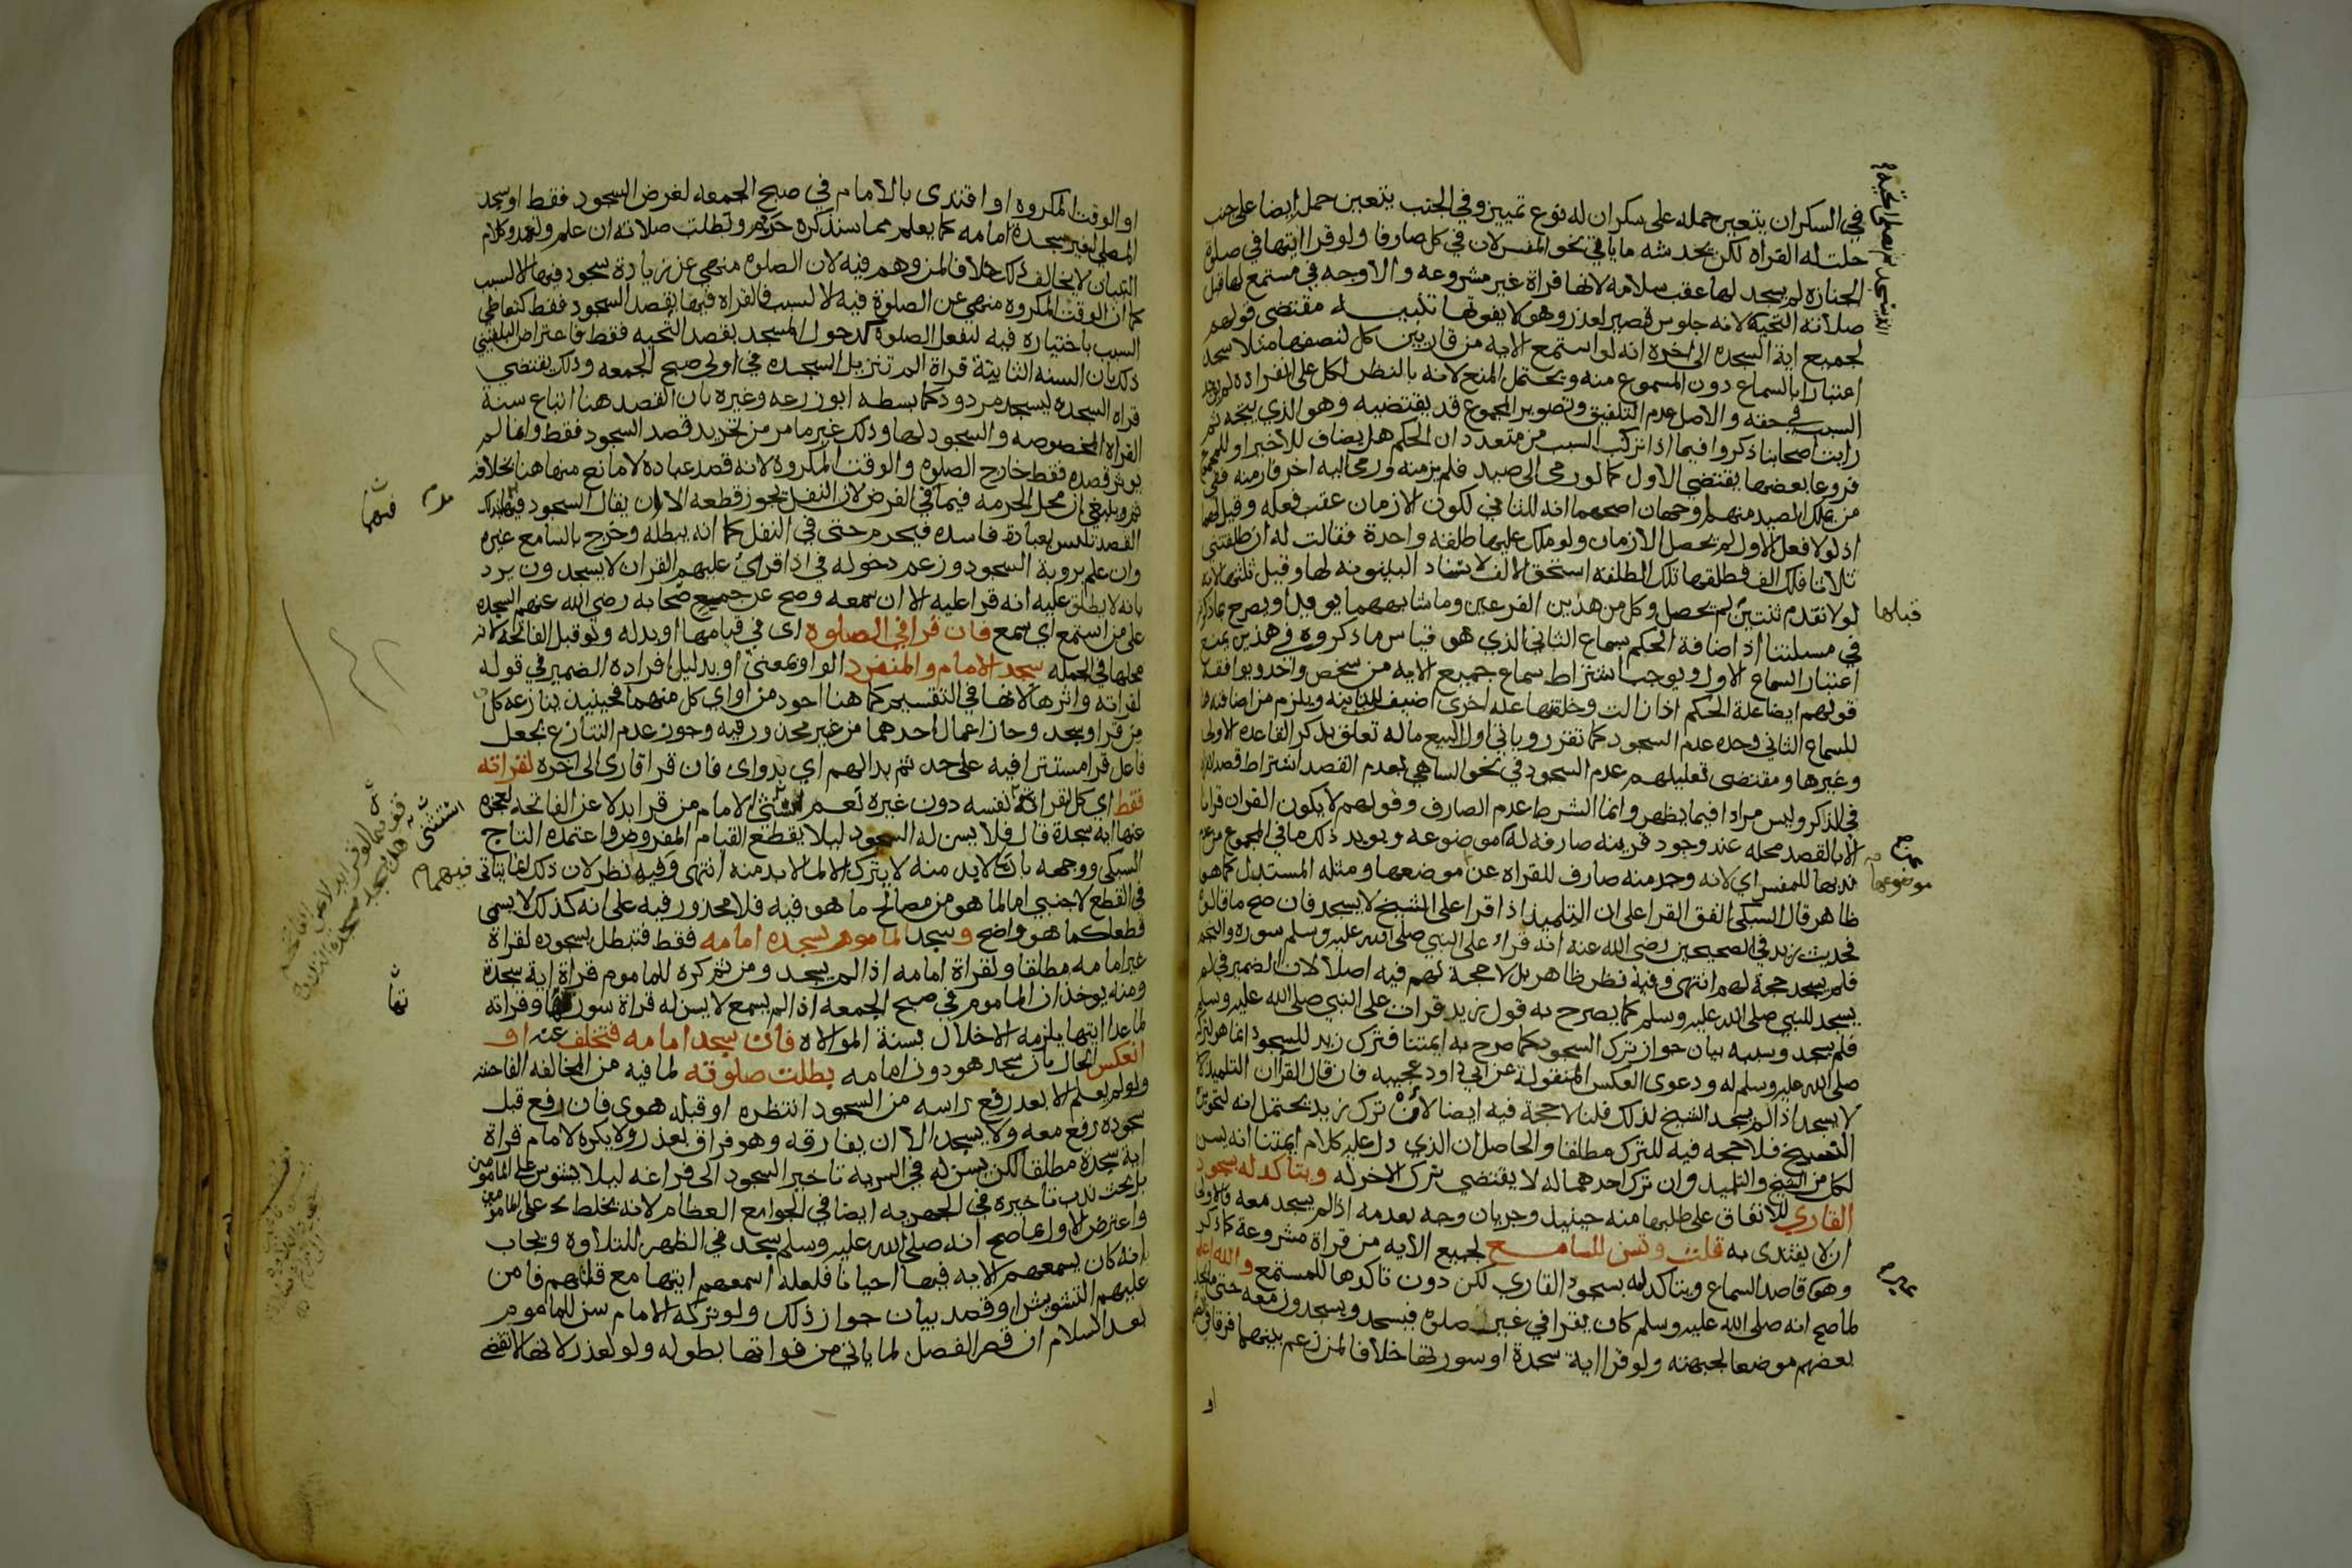 ففي السكران يتعين حمله على سكران له نوع تمييز وفي الجنب يتعين حمله ايضا على جنب
حلت له القراه لكن يخدشه ما ياتي في نحو المفسر لان في كل صارفا ولو قرا ايتها في صلوة
الجنازه لم يسجد لها عقب سلامه لانها قراة غير مشروعه والاوجه في مستمع لها قبل
صلاته التحيه لانه جلوس قصير لعذر وهو لا يفوتها تنبيه مقتضى قولهم
لجميع اية السجده الى اخره انه لو استمع الايه من قارئين كل لنصفها مثلا سجد
اعتبارا بالسماع دون المسموع منه ويحتمل المنع لانه بالنظر لكل على انفراده لم يوجد
السبب في حقه والاصل عدم التلفيق وتصوير المجموع قد يقتضيه وهو الذي يتجه ثم
رايت اصحابنا ذكروا فيما اذا تركب السبب من متعدد ان الحكم هل يضاف للاخير او للمجموع
فروعا بعضها يقتضي الاول كما لو رمى الى صيد فلم يزمنه ورمى اليه اخر فازمنه ففي
من يملك الصيد منهما وجهان اصحهما انه للثاني لكون الازمان عقب فعله وقيل لهما
اذ لولا فعل الاول لم يحصل الازمان ولو ملك عليها طلقة واحدة فقالت له ان طلقتني
ثلاثا فلك الف فطلقها تلك الطلقه استحق الالف لاسناد البينونه لها وقيل ثلثها لانه
لولا تقدم ثنتين لم يحصل وكل من هذين الفرعين وما شابههما يويد او يصرح بما ذكرته
في مسلتنا اذ اضافة الحكم بسماع الثاني الذي هو قياس ما ذكروه في هذين يمنع
اعتبار السماع الاول ويوجب اشتراط سماع جميع الايه من شخص واحد ويوافقه
قولهم ايضا علة الحكم اذا زالت وخلفتها علة اخرى اضيف للثانيه ويلزم من اضافته
للسماع الثاني وحده عدم السجود كما تقرر وياتي اول البيع ما له تعلق بذكر القاعده الاولى
وغيرها ومقتضى تعليلهم عدم السجود في نحو الساهي بعدم القصد اشتراط قصد القراه
في الذكر وليس مرادا فيما يظهر وانما الشرط عدم الصارف وقولهم لا يكون القران قرانا
الا بالقصد محله عند وجود قرينه صارفه له عن موضوعه ويويد ذلك ما في المجموع من عدم
ندبها للمفسر اي لانه وجد منه صارف للقراه عن موضعها ومثله المستدل كما هو
ظاهر قال السبكي اتفق القرا على ان التلميذ اذا قرا على الشيخ لا يسجد فان صح ما قالوه
فحديث زيد في الصحيحين رضي الله عنه انه قرا على النبي صلى الله عليه وسلم سورة والنجم
فلم يسجد حجة لهم انتهى وفيه نظر ظاهر بل لا حجة لهم فيه اصلا لان الضمير في لم
يسجد للنبي صلى الله عليه وسلم كما يصرح به قول زيد قرات على النبي صلى الله عليه وسلم
فلم يسجد وسببه بيان جواز ترك السجود كما صرح به ايمتنا فترك زيد للسجود انما هو لتركه
صلى الله عليه وسلم له ودعوى العكس المنقولة عن ابي داود عجيبه فان قال القرا ان التلميذ
لا يسجد اذا لم يسجد الشيخ لذلك قلنا لا حجة فيه ايضا لان ترك زيد يحتمل انه
الشيخ فلا حجه فيه للترك مطلقا والحاصل ان الذي دل عليه كلام ايمتنا انه يسن
لكل من الشيخ والتلميذ وان ترك احدهما له لا يقتضي ترك الاخر له ويتاكد له بسجود
القاري للاتفاق على طلبها منه حينيذ وجريان وجه بعدمه اذا لم يسجد معه والاولى
ان لا يقتدى به قلت وتسن للسامع لجميع الايه من قراة مشروعة كما ذكر والله اعلم
وهو قاصد السماع ويتاكد له بسجود القاري لكن دون تاكدها للمستمع
لما صح انه صلى الله عليه وسلم كان يقرا في غير صلوة فيسجد ويسجدون معه حتى ما يجد
بعضهم موضعا لجبهته ولو قرا اية سجدة او سورتها خلافا لمن زعم بينهما فرقا في
او
قبلها
عن
موضوعها
غير
او الوقت المكروه او اقتدى بالامام في صبح الجمعه لغرض السجود فقط او سجد
المصلي لغير سجدة امامه كما يعلم مما سنذكره حرم وبطلت صلاته ان علم وتعمد وكلام
التبيان لا يخالف ذلك خلافا لمن وهم فيه لان الصلوة منهي عن زيادة سجود فيها الا لسبب
كما ان الوقت المكروه منهي عن الصلوة فيه لا لسبب فالقراه فيها بقصد السجود فقط كتعاطي
السبب باختياره فيه لتفعل الصلوة كدخول المسجد بقصد التحيه فقط فاعتراض البلقيني
ذلك بان السنه الثابتة قراة الم تنزيل السجده في اولى صبح الجمعه وذلك يقتضي
قراه السجده ليسجد مردود كما بسطه ابو زرعه وغيره بان القصد هنا اتباع سنة
القراه المخصوصه والسجود لها وذلك غير ما مر من تجريد قصد السجود فقط وانما لم
يوثر قصده فقط خارج الصلوة والوقت المكروه لانه قصد عباده لا مانع منها هنا بخلافه
ثم وينبغي ان محل الحرمه فيما في الفرض لان النفل يجوز قطعه الا ان يقال السجود فيهما
القصد تلبس بعبادة فاسده فيحرم حتى في النفل كما انه يبطله وخرج بالسامع غيره
وان علم بروية السجود وزعم دخوله في اذا قرئ عليهم القران لا يسجدون يرد
بانه لا يطلق عليه انه قرا عليه الا ان سمعه وصح عن جميع صحابه رضي الله عنهم السجدة
على من استمع اي سمع فان قرا في الصلوة اي في قيامها او بدله ولو قبل الفاتحه لانه
محلها في الجمله سجد الامام والمنفرد الواو بمعنى او بدليل افراده الضمير في قوله
لقراته واثرها لانها في التقسيم كما هنا اجود من او اي كل منهما فحينيذ يتنازعه كل
من قرا وسجد وجاز اعمال احدهما من غير محذور فيه وجوز عدم التنازع بجعل
فاعل قرا مستترا فيه على حد ثم بدا لهم اي بدو اي فان قرا قاري الى اخره لقراته
فقط اي كل لقراة نفسه دون غيره نعم استثنى الامام من قرا بدلا عن الفاتحه لعجزه
عنها اية سجدة قال فلا يسن له السجود ليلا يقطع القيام المفروض واعتمده التاج
السبكي ووجهه بان ما لا بد منه لا يترك الا لما لا بد منه انتهى وفيه نظر لان ذلك انما يتاتى
في القطع لاجنبي اما لما هو من مصالح ما هو فيه فلا محذور فيه على انه كذلك لا يسمى
قطعا كما هو واضح وسجد الماموم لسجدة امامه فقط فتبطل بسجوده لقراة
غير امامه مطلقا ولقراة امامه اذا لم يسجد ومن ثم كره للماموم قراة اية سجدة
ومنه يوخذ ان الماموم في صبح الجمعه اذا لم يسمع لا يسن له قراة سورتها وقراته
لما عدا ايتها يلزمه الاخلال بسنة الموالاه فان سجد امامه فتخلف عنه او
انعكس الحال بان سجد هو دون امامه بطلت صلوته لما فيه من المخالفه الفاحشه
ولو لم يعلم الا بعد رفع راسه من السجود انتظره او قبله هوى فان رفع قبل
سجوده رفع معه ولا يسجد الا ان يفارقه وهو فراق بعذر ولا يكره لامام قراة
اية سجدة مطلقا لكن يسن له في السريه تاخير السجود الى فراغه ليلا يشوش على المامومين
بل بحث ندب تاخيره في الجهريه ايضا في الجوامع العظام لانه يخلط على المامومين
واعترض الاول بما صح انه صلى الله عليه وسلم سجد في الظهر للتلاوة ويجاب
بانه كان يسمعهم الايه فيها احيانا فلعله اسمعهم ايتها مع قلتهم فامن
عليهم التشويش او قصد بيان جواز ذلك ولو تركه الامام سن للماموم
بعد السلام ان قصر الفصل لما ياتي من فواتها بطوله ولو لعذر لانها لا تقضى
فيهما
استثنى
فيهما
تها